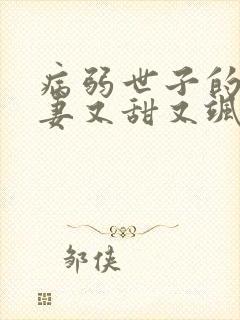 病弱世子的
妻又甜又飒
邹侠